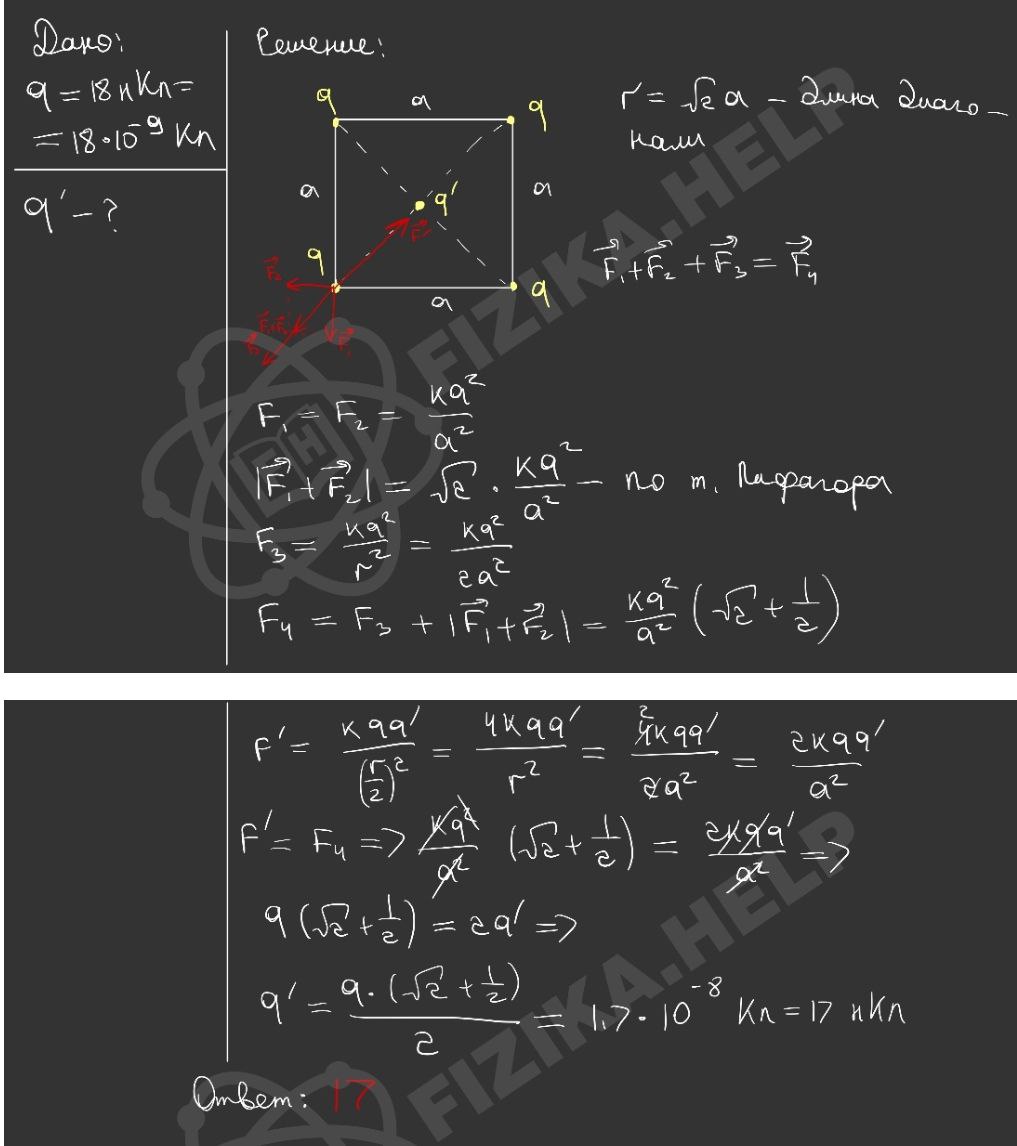 Дано:
q = 18 нКл =
= 18·10⁻⁹ Кл
q' - ?
Решение:
q a q
a q' a
q a q
F⃗'
F⃗₂
F⃗₁+F⃗₂
F⃗₃
F⃗₁
r = √2 a – длина диаго–
нали
F⃗₁ + F⃗₂ + F⃗₃ = F⃗₄
F₁ = F₂ = kq²/a²
|F⃗₁ + F⃗₂| = √2 · kq²/a² – по т. Пифагора
F₃ = kq²/r² = kq²/2a²
F₄ = F₃ + |F⃗₁ + F⃗₂| = kq²/a² (√2 + 1/2)
F' = kqq'/(r/2)² = 4kqq'/r² = 4kqq'/2a² = 2kqq'/a²
F' = F₄ => kq²/a² (√2 + 1/2) = 2kqq'/a² =>
q (√2 + 1/2) = 2q' =>
q' = q·(√2 + 1/2)/2 = 1,7·10⁻⁸ Кл = 17 нКл
Ответ: 17
FIZIKA.HELP
FIZIKA.HELP